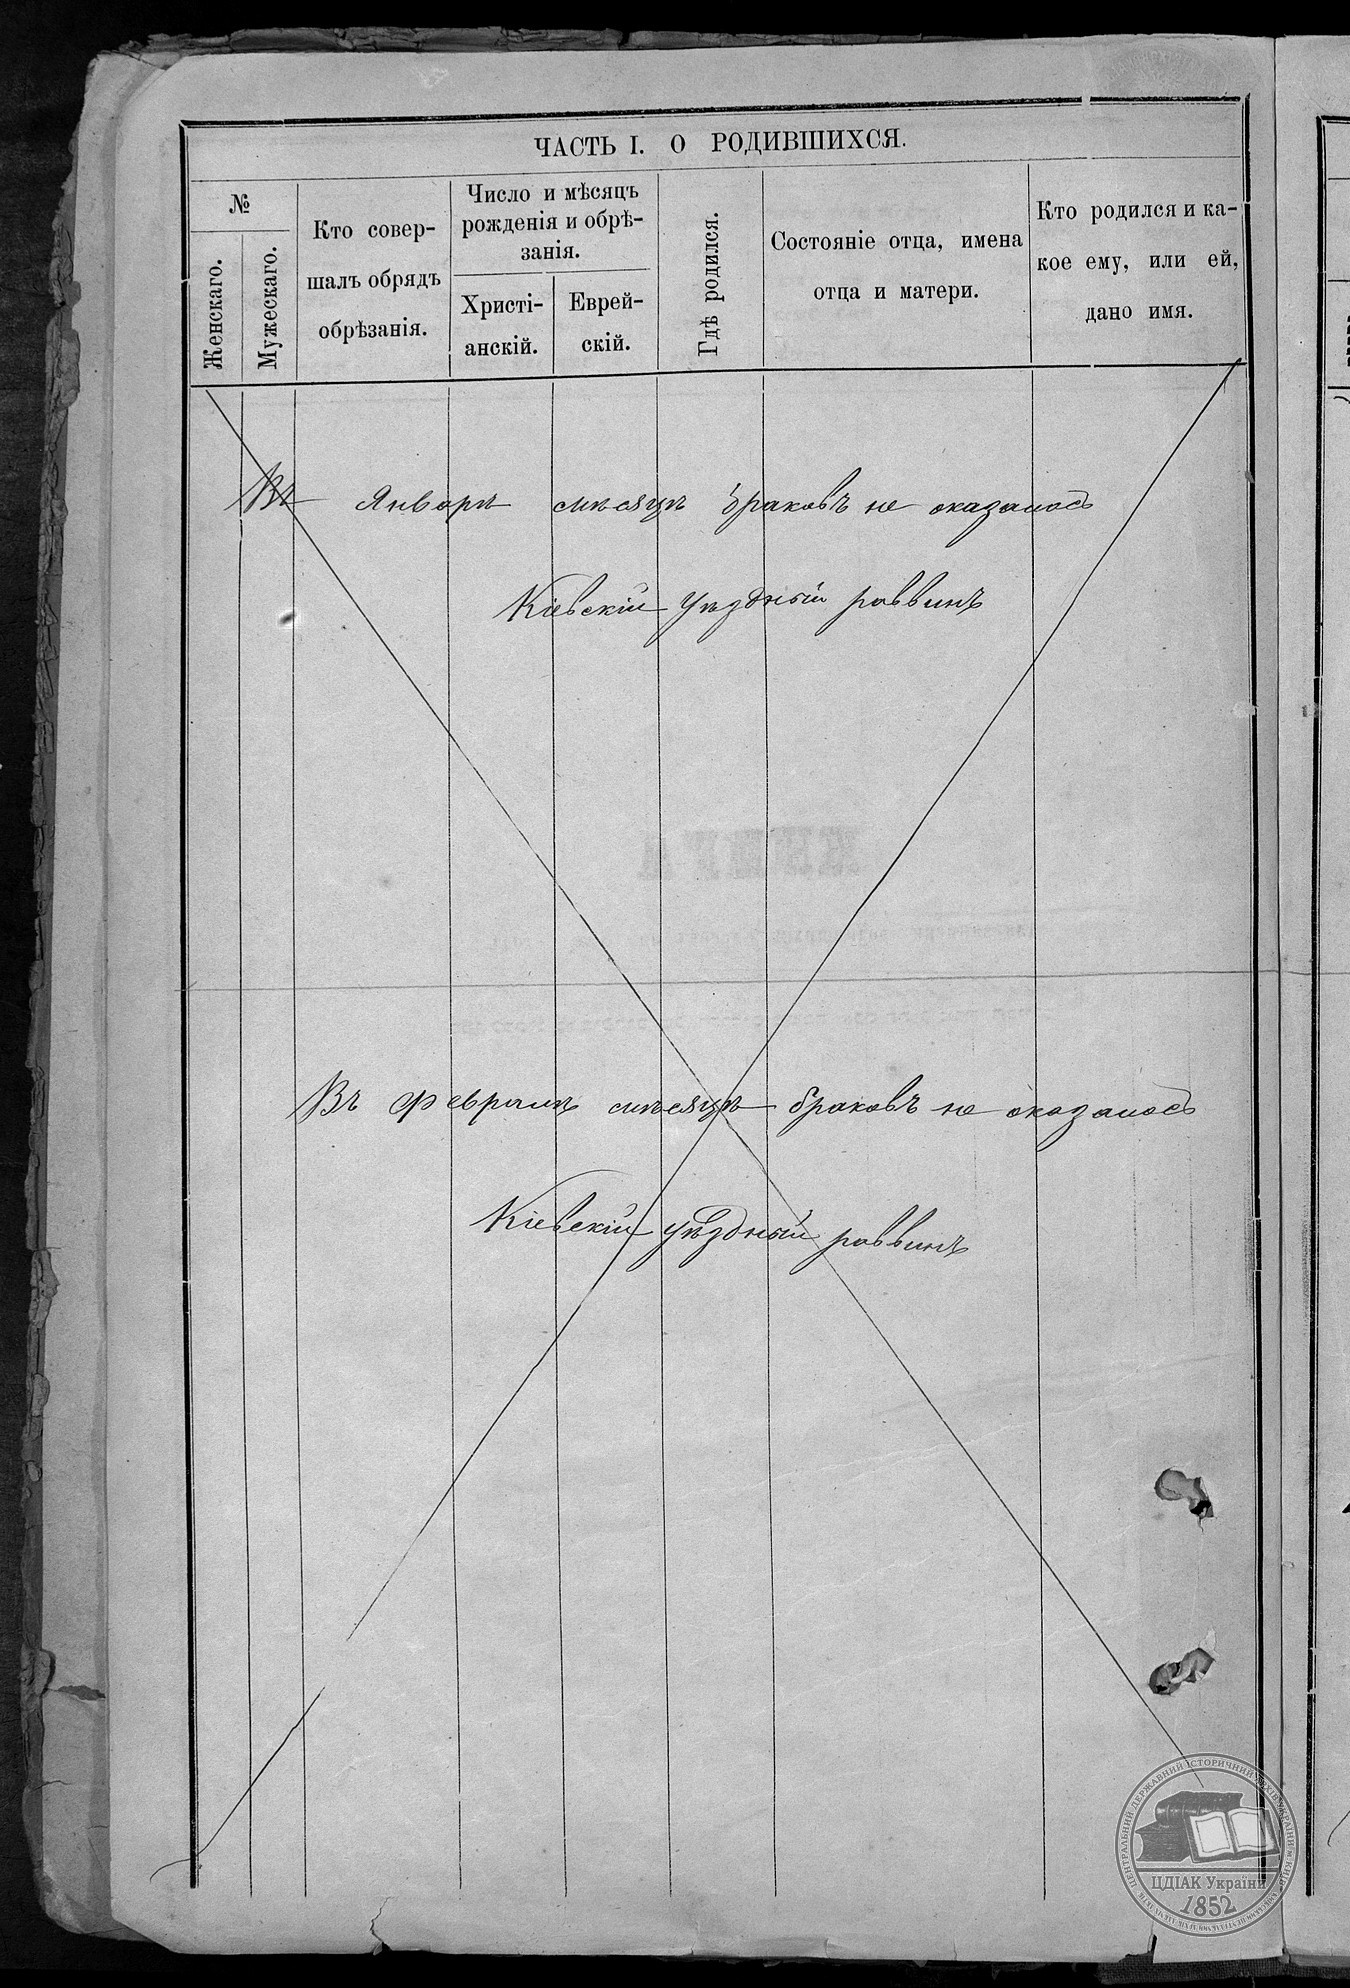 ЧАСТЬ I. О РОДИВШИХСЯ.
№
Женскаго.
Мужескаго.
Кто совер-
шалъ обрядъ
обрѣзанія.
Число и мѣсяцъ
рожденія и обрѣ-
занія.
Христі-
анскій.
Еврей-
скій.
Гдѣ родился.
Состояніе отца, имена
отца и матери.
Кто родился и ка-
кое ему, или ей,
дано имя.
Въ Январѣ мѣсяцѣ браковъ не оказалось
Кіевскій уѣздный раввинъ
КНИГА
Въ Февралѣ мѣсяцѣ браковъ не оказалось
Кіевскій уѣздный раввинъ
ЦЕНТРАЛЬНИЙ ДЕРЖАВНИЙ ІСТОРИЧНИЙ АРХІВ УКРАЇНИ м. КИЇВ
ЦДІАК України
1852